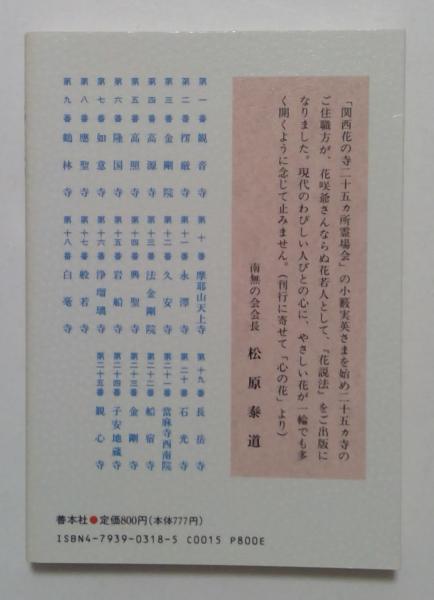 「関西花の寺二十五ヵ所霊場会」の小籔実英さまを始め二十五ヵ寺の
ご住職方が、花咲爺さんならぬ花若人として、『花説法』をご出版に
なりました。現代のわびしい人びとの心に、やさしい花が一輪でも多
く開くように念じて止みません。(刊行に寄せて「心の花」より)
南無の会会長 松原泰道
第一番 観音寺
第二番 楞厳寺
第三番 金剛院
第四番 高源寺
第五番 高照寺
第六番 隆国寺
第七番 如意寺
第八番 應聖寺
第九番 鶴林寺
第十番 摩耶山天上寺
第十一番 永澤寺
第十二番 久安寺
第十三番 法金剛院
第十四番 興聖寺
第十五番 岩船寺
第十六番 浄瑠璃寺
第十七番 般若寺
第十八番 白毫寺
第十九番 長岳寺
第二十番 石光寺
第二十一番 當麻寺西南院
第二十二番 船宿寺
第二十三番 金剛寺
第二十四番 子安地蔵寺
第二十五番 観心寺
善本社●定価800円(本体777円)
ISBN4-7939-0318-5 C0015 P800E